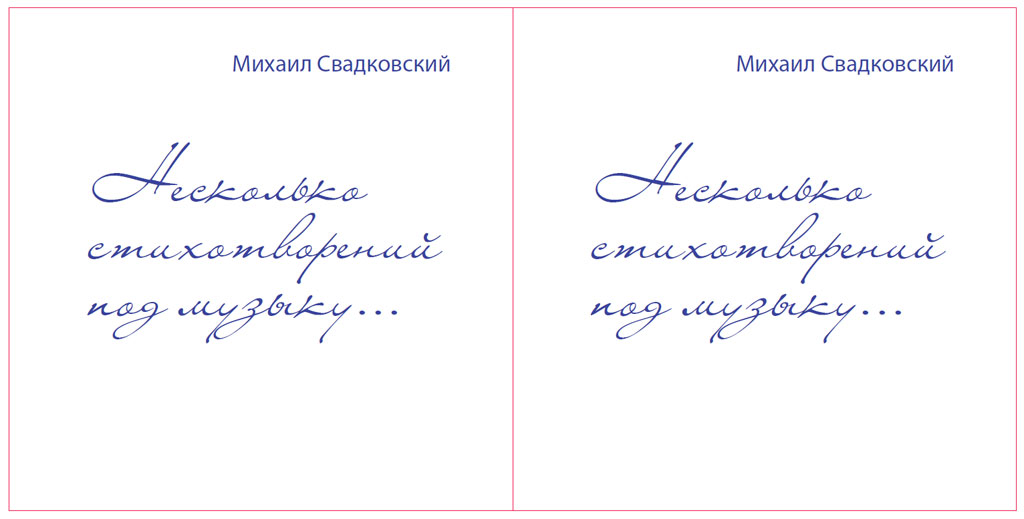 Михаил Свадковский
Несколько
стихотворений
под музыку...
Михаил Свадковский
Несколько
стихотворений
под музыку...